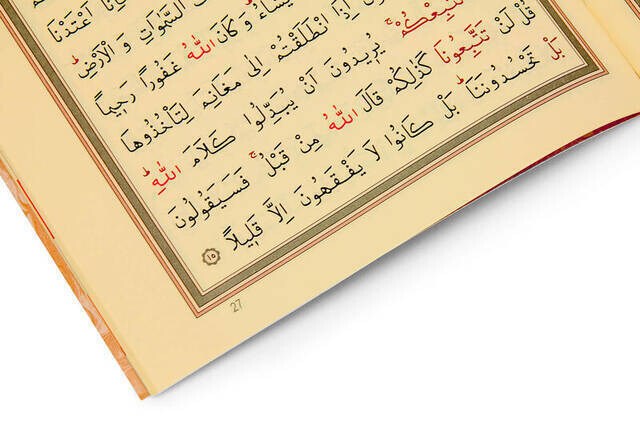 اَعْتَدْنَا
السَّمٰوَاتِ وَالْاَرْضِۜ
يَشَٓاءُۜ وَكَانَ اللّٰهُ غَفُورًا رَح۪يمًا
اِذَا انْطَلَقْتُمْ اِلٰى مَغَانِمَ لِتَأْخُذُوهَا
نَتَّبِعْكُمْۚ يُر۪يدُونَ اَنْ يُبَدِّلُوا كَلَامَ اللّٰهِۜ
قُلْ لَنْ تَتَّبِعُونَا كَذٰلِكُمْ قَالَ اللّٰهُ مِنْ قَبْلُۚ فَسَيَقُولُونَ
بَلْ تَحْسُدُونَنَاۜ بَلْ كَانُوا لَا يَفْقَهُونَ اِلَّا قَل۪يلًا ١٥
27